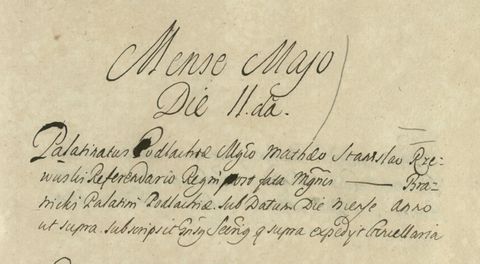 Mense Majo
Die 11. da.
Palatinatus Podlachiæ Mgco Mathæo Stanislao Rze-
wuski Referendario Regni post fata Mgnci — Bra-
nicki Palatini Podlachiæ. Sub Datum Die mense anno
ut supra. subscripsit supra expedyt Cancellaria